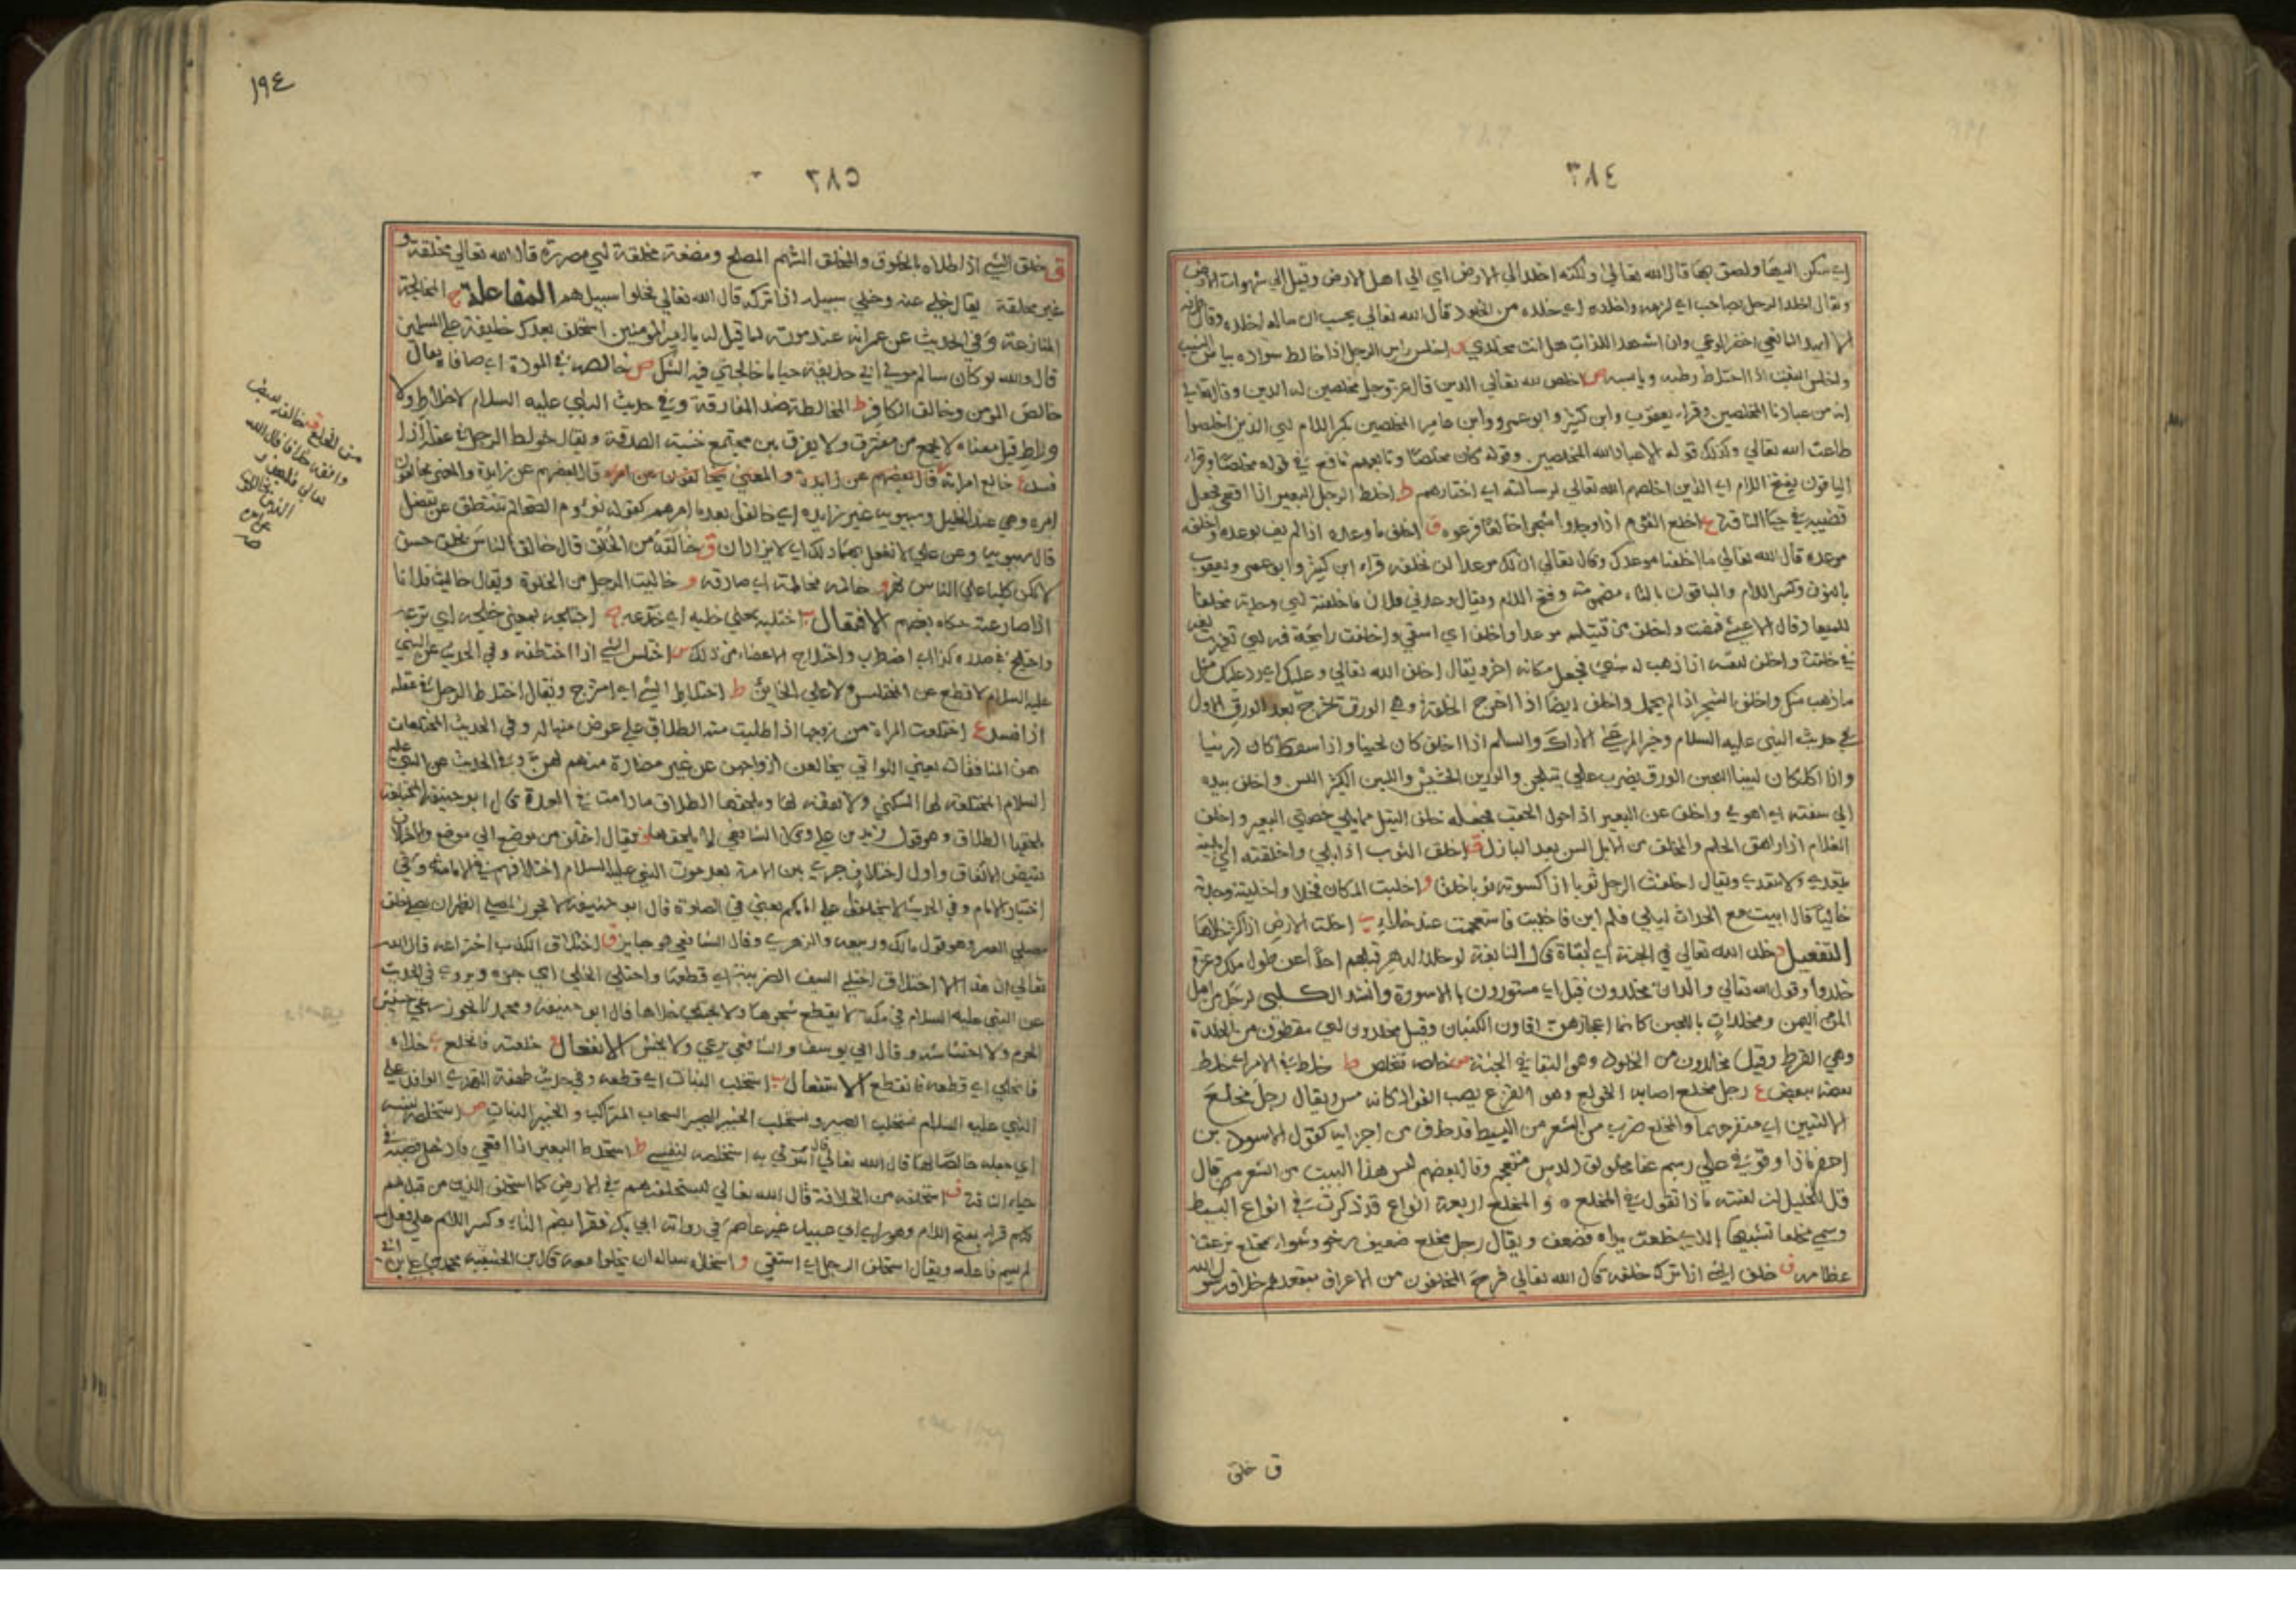 ٣٨٤
اي سكن اليها ولصق بها قال الله تعالى ولكنه اخلد الى الارض اي الى اهل الارض وقيل الى شهوات الارض
ويقال اخلد الرجل بصاحبه اي لزمه واخلده اي خلده من الخلود قال الله تعالى يحسب ان ماله اخلده وقال
الوغي وان اشهد اللذات هل انت مخلدي س اخلس راس الرجل اذا خالط سواده بياض الشيب
واخلس النبت اذا اختلط رطبه ويابسه ص اخلص لله تعالى الدين قال عز وجل مخلصين له الدين وقال تعالى
انه من عبادنا المخلصين وقراء يعقوب وابن كثير وابو عمرو وابن عامر المخلصين بكسر اللام اي الذين اخلصوا
طاعت الله تعالى وكذلك قوله الا عباد الله المخلصين وقوله كان مخلصا وتابعهم نافع في قوله مخلصا وقراء
الباقون بفتح اللام اي الذين اخلصهم الله تعالى لرسالته اي اختارهم ط اخلط الرجل البعير اذا اقعى فجعل
قضيبه في حيا الناقة ع اخلع القوم اذا وجدوا ق اخلف ما وعده اذا لم يف بوعده واخلفه
موعده قال الله تعالى ما اخلفنا موعدك وقال تعالى ان لك موعدا لن تخلفه قراء ابن كثير وابو عمرو ويعقوب
بالنون وكسر اللام والباقون بالتاء مضمومة وفتح اللام ويقال وعدني فلان فاخلفته اي وجدته مخلفا
للميعاد قال الاعشى فمضت واخلف من قتيلة موعدا واخلف اي استقى واخلفت رائحة فمه اي تغيرت
في خلفت واخلف لنفسه اذا ذهب له شيء فجعل مكانه اخر ويقال اخلف الله تعالى وعليك اي رد عليك مثل
ما ذهب منك واخلف الشجر اذا لم يحمل واخلف ايضا اذا اخرج الخلفة وهي الورق تخرج بعد الورق الاول
في حديث النبي عليه السلام وخير المرعى الاراك والسلم اذا اخلف كان لجينا واذا سقط كان درينا
واذا اكل كان لبينا اللجين الورق يضرب حتى يتلجن والدرين الحشيش واللبين الكثير اللبن واخلف بيده
الى سيفه اي اهوى واخلف عن البعير اذا حول الحقب فجعله خلف الثيل مما يلي خصيتي البعير واخلف
الغلام اذا راهق الحلم والمخلف من الابل السن بعد البازل ق اخلق الثوب اذا بلي واخلقته اي ابليته
يتعدى ولا يتعدى ويقال اخلقت الرجل ثوبا اذا كسوته ثوبا خلقا و اخليت المكان فخلا واخليته وجدته
خاليا قال ابيت مع الحداث ليلي فلم ابن فاخليت فاستعجمت عند خلائي ي اخلت الارض اذا كثر خلاها
التفعيل د خلده الله تعالى في الجنة اي ابقاه قال النابغة لو خالد الدهر قبلهم احدا عن طول ملك وعزة
خلدوا وقول الله تعالى والدان مخلدون قيل اي مستورون بالاسورة وانشد الكلبي لرجل من اهل
اليمن ومخلدات باللجين كانما اعجازهن اقاوز الكثبان وقيل مخلدون اي مقرطون من الخلدة
وهي القرط وقيل مخلدون من الخلود وهو البقاء في الجنة ص خلصه تخلص ط خلط في الامر اي خلط
بعضه ببعض ع رجل مخلع اصابه الخولع وهو الفزع يصيب الفؤاد كانه مس ويقال رجل مخلع
الاليتين اي منفرجهما والمخلع ضرب من الشعر من البسيط قد حذف من اجزائه كقول الاسود بن
يعفر ماذا وقوفي على رسم عفا مخلولق دارس مستعجم وقال بعضهم ليس هذا البيت من الشعر من قال
قل للخليل ان لقيته ماذا تقول في المخلع ٥ و المخلع اربعة انواع قد ذكرت في انواع البسيط
وسمي مخلعا تشبيها بالذي خلعت يداه فضعف ويقال رجل مخلع ضعيف رخو وشواء مخلع نزعت
عظامه ف خلف الشيء اذا تركه خلفه قال الله تعالى فرح المخلفون من الاعراف بمقعدهم خلاف رسول الله
ق خلق
١٩٤
٣٨٥
ق خلق الشيء اذا طلاه بالخلوق والمخلق السهم المصلح ومضغة مخلقة اي مصورة قال الله تعالى مخلقة و
غير مخلقة يقال خلى عنه وخلى سبيله اذا تركه قال الله تعالى فخلوا سبيلهم المفاعلة ج المخالجة
المنازعة وفي الحديث عن عمر انه عند موته لما قيل له يا امير المؤمنين استخلف بعدك خليفة على المسلمين
قال والله لو كان سالم مولى ابي حذيفة حيا ما خالجني فيه الشك ص خالصه في المودة اي صافاه يقال
خالص المومن وخالق الكافر ط المخالطة ضد المفارقة وفي حديث النبي عليه السلام لا خلاط ولا
وراط قيل معناه لا يجمع بين مفترق ولا يفرق بين مجتمع خشية الصدقة ويقال خولط الرجل في عقله اذا
فسد ع خالع امراته قال بعضهم عن زايدة والمعنى يخالفون عن امره قال بعضهم عن زايدة والمعنى يخالفون
امره وهي عند الخليل وسيبويه غير زايدة اي خالفوا بعدما امرهم كقوله نؤوم الضحى لم تنتطق عن تفضل
قال سيبويه وعن علي لا تفعل بهما ذلك اي لا يزادان ق خالقه من الخلق قال خالق الناس بخلق حسن
لا تكن كلبا على الناس تهر و خاله مخالمة اي صادقه و خاليت الرجل من الخلوة ويقال خاليت فلانا
اذا صارعته حكاه بعضهم الافتعال ب اختلبه بمعنى خلبه اي خدعه ج اختلجه بمعنى خلجه اي نزعه
واختلج في صدره كذا اي اضطرب واختلاج الاعضاء من ذلك س اختلس الشيء اذا اختطفه وفي الحديث عن النبي
عليه السلام لا قطع على المختلس ولا على الخاين ط اختلط الشيء اي امتزج ويقال اختلط الرجل في عقله
اذا فسد ع اختلعت المراة من زوجها اذا طلبت منه الطلاق على عوض منها له وفي الحديث المختلعات
هن المنافقات يعني اللواتي يخالعن ازواجهن عن غير مضارة منهم لهن وفي الحديث عن النبي عليه
السلام المختلعة لها السكنى ولا نفقة لها ويلحقها الطلاق ما دامت في العدة قال ابو حنيفة المختلعة
يلحقها الطلاق وهو قول زيد بن علي وقال الشافعي لا يلحقها ف يقال اختلف من موضع الى موضع والاختلاف
نقيض الاتفاق واول اختلاف جرى بين الامة بعد موت النبي عليه السلام اختلافهم في الامامة وفي
اختيار الامام وفي الحديث لا تختلفوا على امامكم يعني في الصلوة قال ابو حنيفة لا يجوز لمصلي الظهر ان يصلي خلف
مصلي العصر وهو قول مالك وربيعه والزهري وقال الشافعي هو جايز ق اختلاق الكذب اختراعه قال الله
تعالى ان هذا الا اختلاق ي اختلى السيف الضريبة اي قطعها واختلى الخلى اي جزه ويروى في الحديث
عن النبي عليه السلام في مكة لا يقطع شجرها ولا يختلى خلاها قال ابو حنيفة ومحمد لا يجوز رعي حشيش
الحرم ولا احتشاشه وقال ابو يوسف والشافعي يرعى ولا يحش الانفعال ع خلعته فانخلع ي خلاه
فانخلى اي قطعه فانقطع الاستفعال ب استخلب النبات اي قطعه وفي حديث طهفة النهدي الوافد على
النبي عليه السلام نستحلب الصبير ونستخلب الخبير الصبير السحاب المتراكب والخبير النبات ص استخلصه لنفسه
اي جعله خالصا لها قال الله تعالى ائتوني به استخلصه لنفسي ط استخلط البعير اذا اقعى فادخل قضيبه في
حياء الناقة ف استخلفه من الخلافة قال الله تعالى ليستخلفنهم في الارض كما استخلف الذين من قبلهم
كلهم قراء بفتح اللام وهو راي ابي عبيد غير عاصم في رواية ابي بكر فقرا بضم التاء وكسر اللام على فعل
لم يسم فاعله ويقال استخلف الرجل اي استقى و استخلاه ساله ان يخلوا معه قال بن الحنفية محمد بن علي بن ابي
ف خالفه نقيض
وافقه خلافا قال الله
تعالى فليحذر
الذين يخالفون
عن امره
صح